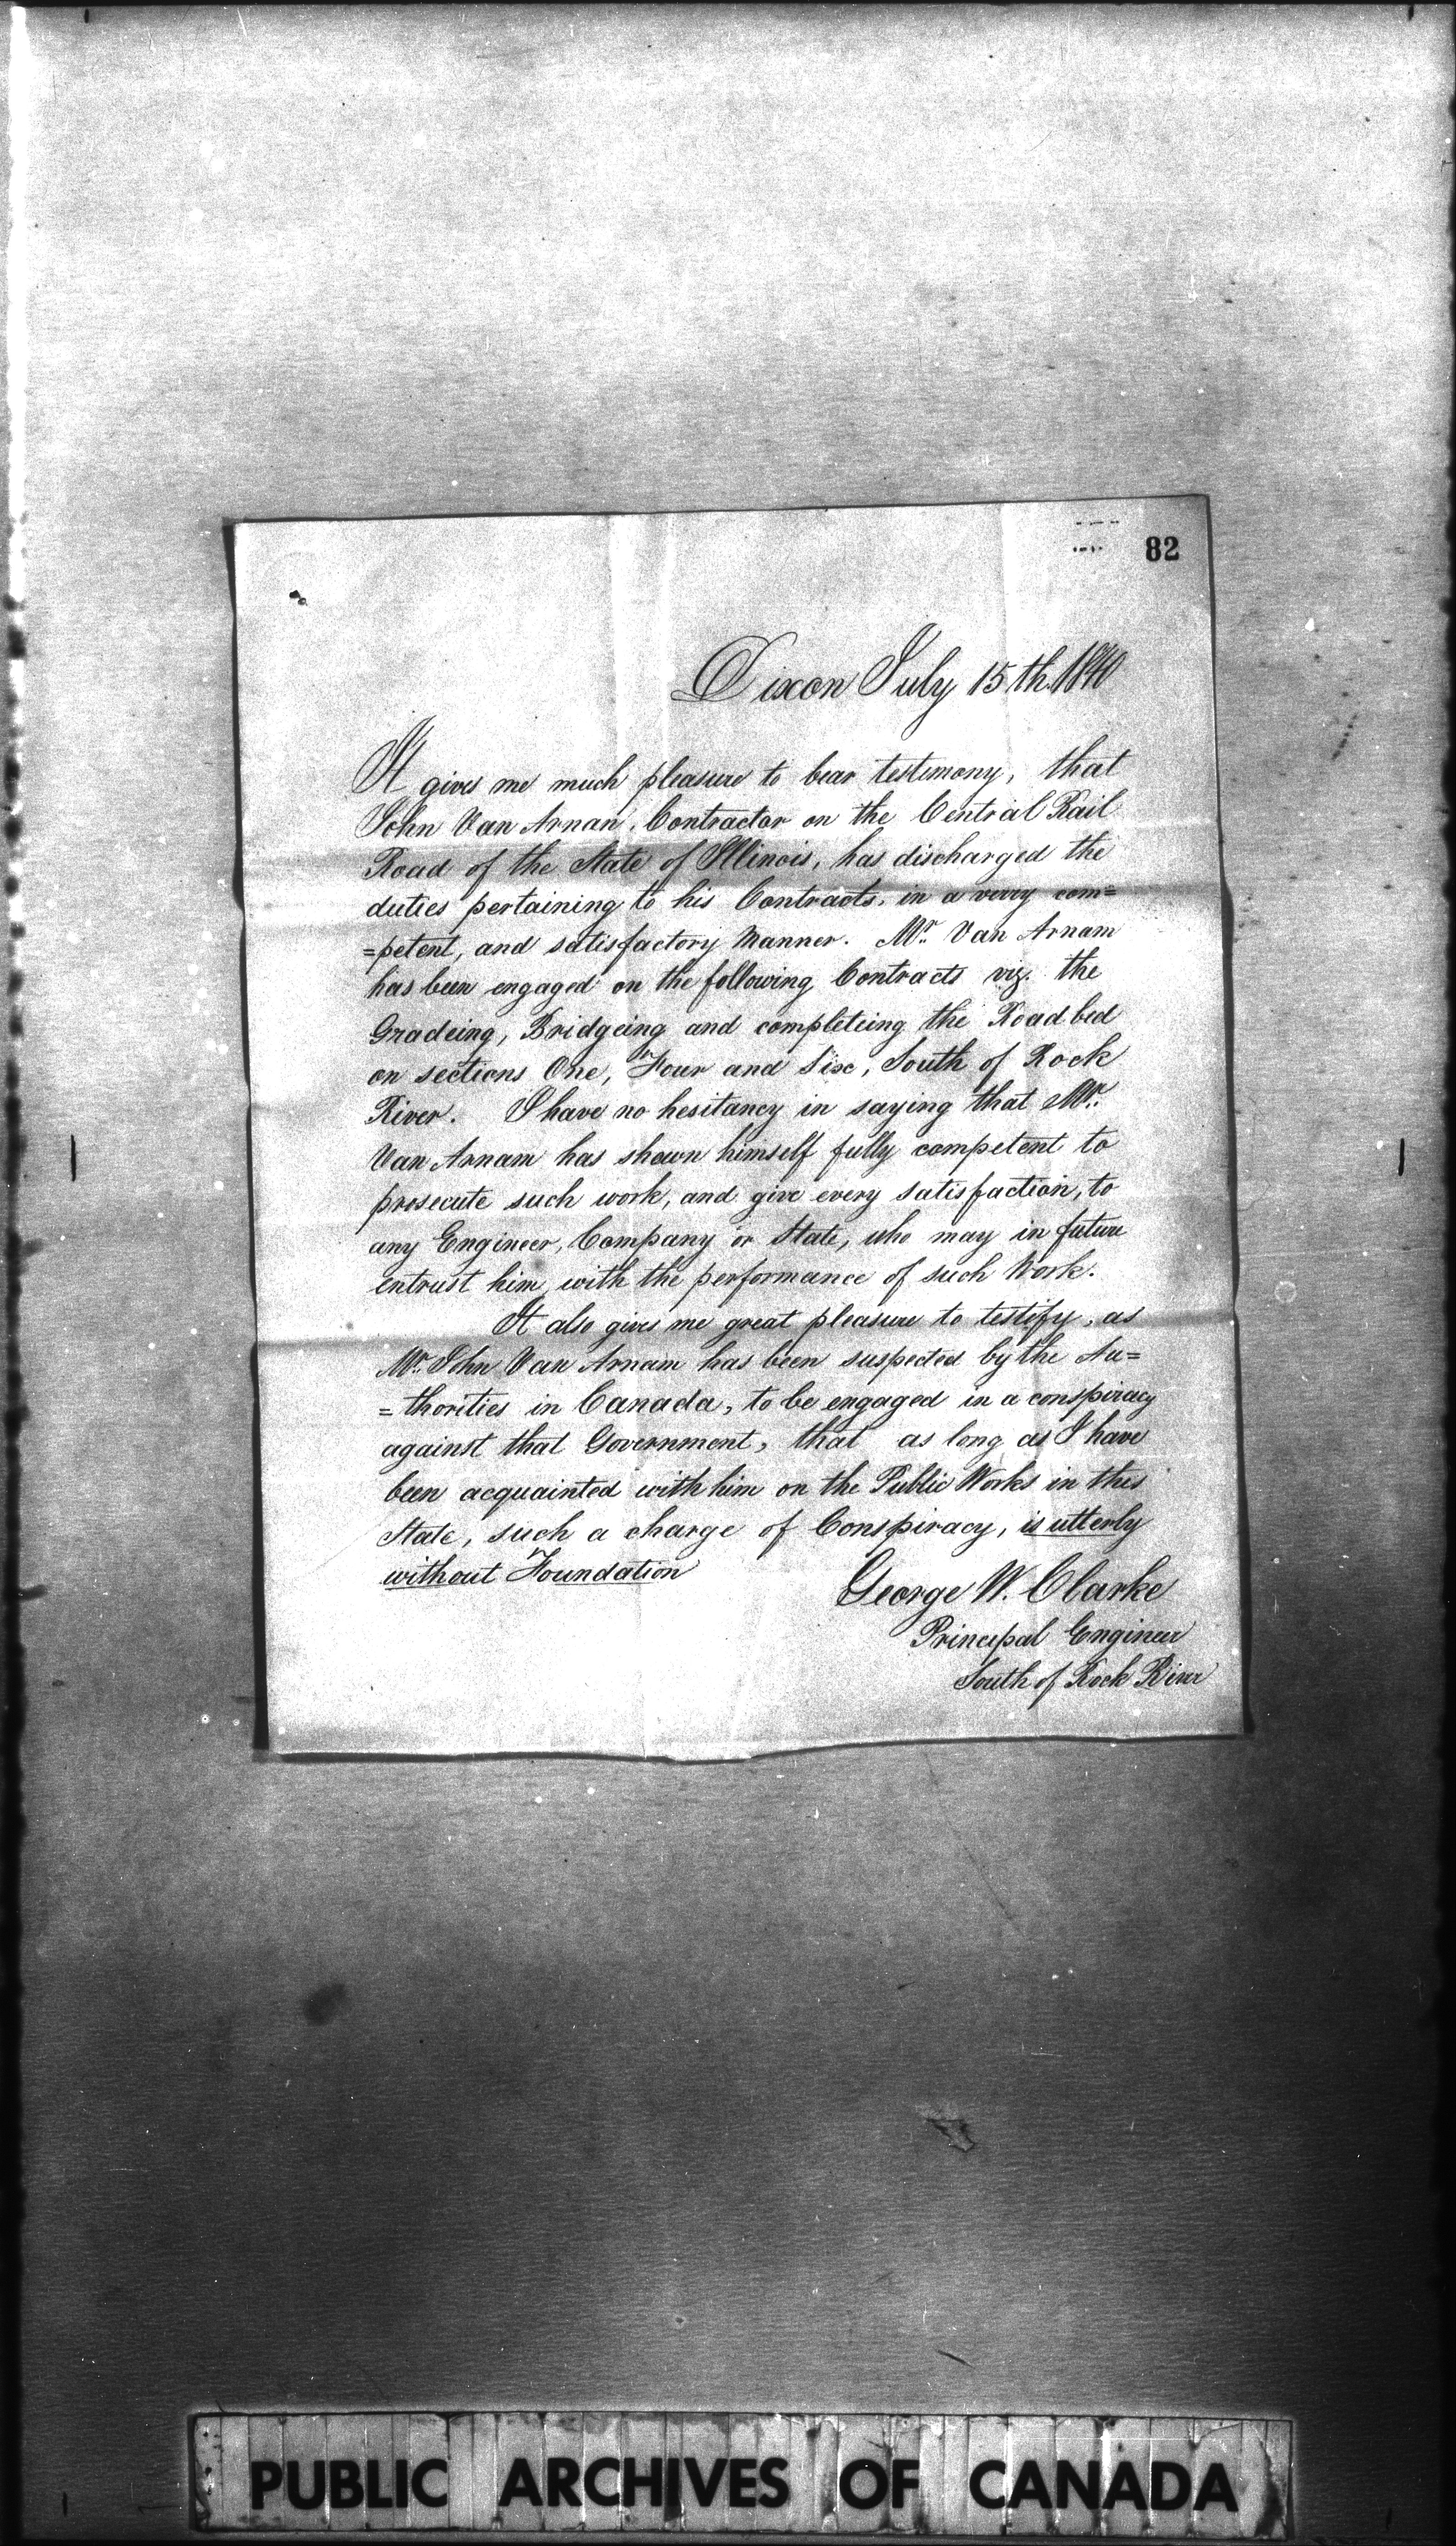 82
Dixon July 15th 1840
It gives me much pleasure to bear testimony, that
John Van Arnan, Contractor on the Central Rail
Road of the State of Illinois, has discharged the
duties pertaining to his Contracts, in a very com=
=petent, and satisfactory Manner. Mr. Van Arnam
has been engaged on the following Contracts viz. the
Gradeing, Bridgeing and completeing the Road bed
on sections One, Four and Six, South of Rock
River. I have no hesitancy in saying that Mr.
Van Arnam has shown himself fully competent to
prosecute such work, and give every satisfaction, to
any Engineer, Company or State, who may in future
entrust him with the performance of such Work.
It also gives me great pleasure to testify, as
Mr. John Van Arnam has been suspected by the Au=
=thorities in Canada, to be engaged in a conspiracy
against that Government, that as long as I have
been acquainted with him on the Public Works in this
State, such a charge of Conspiracy, is utterly
without Foundation
George W. Clarke
Principal Engineer
South of Rock River
PUBLIC ARCHIVES OF CANADA